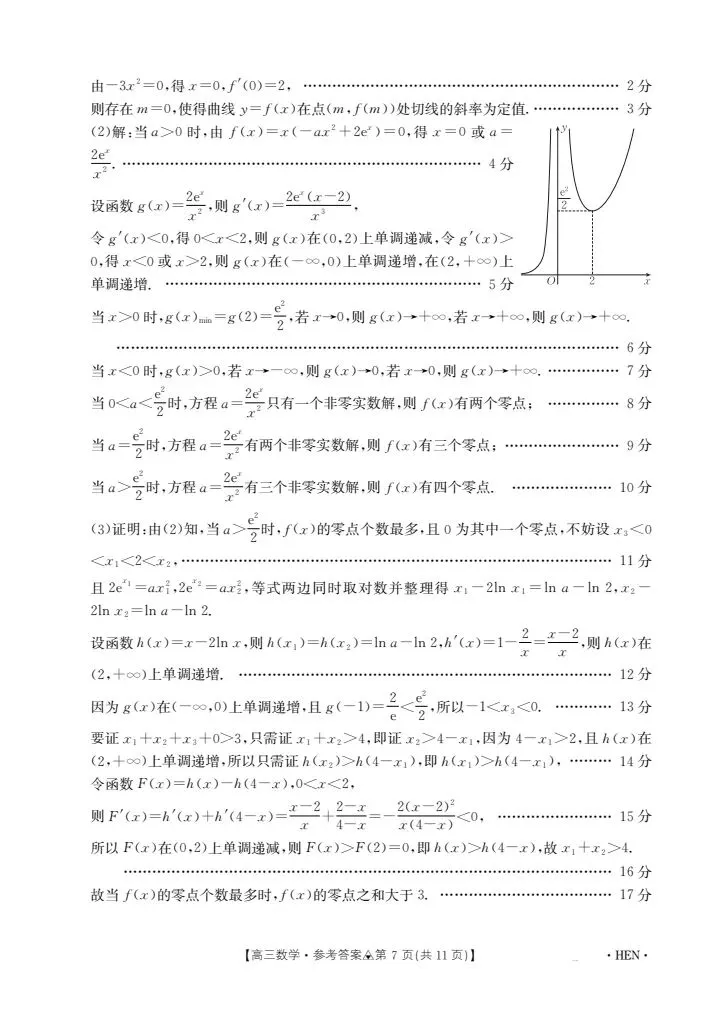 由-3x²=0,得 x=0,f′(0)=2, …… 2 分
则存在 m=0,使得曲线 y=f(x)在点(m,f(m))处切线的斜率为定值. …… 3 分
(2)解:当 a>0 时,由 f(x)=x(-ax²+2eˣ)=0,得 x=0 或 a=
2eˣ/x². …… 4 分
设函数 g(x)=2eˣ/x²,则 g′(x)=2eˣ(x-2)/x³,
令 g′(x)<0,得 0<x<2,则 g(x)在(0,2)上单调递减,令 g′(x)>
0,得 x<0 或 x>2,则 g(x)在(-∞,0)上单调递增,在(2,+∞)上
单调递增. …… 5 分
y
e²/2
O
2
x
当 x>0 时,g(x)min=g(2)=e²/2,若 x→0,则 g(x)→+∞,若 x→+∞,则 g(x)→+∞.
…… 6 分
当 x<0 时,g(x)>0,若 x→-∞,则 g(x)→0,若 x→0,则 g(x)→+∞. …… 7 分
当 0<a<e²/2时,方程 a=2eˣ/x²只有一个非零实数解,则 f(x)有两个零点; …… 8 分
当 a=e²/2时,方程 a=2eˣ/x²有两个非零实数解,则 f(x)有三个零点; …… 9 分
当 a>e²/2时,方程 a=2eˣ/x²有三个非零实数解,则 f(x)有四个零点. …… 10 分
(3)证明:由(2)知,当 a>e²/2时,f(x)的零点个数最多,且 0 为其中一个零点,不妨设 x₃<0
<x₁<2<x₂, …… 11 分
且 2e^x₁=ax₁²,2e^x₂=ax₂²,等式两边同时取对数并整理得 x₁-2ln x₁=ln a-ln 2,x₂-
2ln x₂=ln a-ln 2.
设函数 h(x)=x-2ln x,则 h(x₁)=h(x₂)=ln a-ln 2,h′(x)=1-2/x=(x-2)/x,则 h(x)在
(2,+∞)上单调递增. …… 12 分
因为 g(x)在(-∞,0)上单调递增,且 g(-1)=2/e<e²/2,所以-1<x₃<0. …… 13 分
要证 x₁+x₂+x₃+0>3,只需证 x₁+x₂>4,即证 x₂>4-x₁,因为 4-x₁>2,且 h(x)在
(2,+∞)上单调递增,所以只需证 h(x₂)>h(4-x₁),即 h(x₁)>h(4-x₁), …… 14 分
令函数 F(x)=h(x)-h(4-x),0<x<2,
则 F′(x)=h′(x)+h′(4-x)=(x-2)/x+(2-x)/(4-x)=-2(x-2)²/x(4-x)<0, …… 15 分
所以 F(x)在(0,2)上单调递减,则 F(x)>F(2)=0,即 h(x)>h(4-x),故 x₁+x₂>4.
…… 16 分
故当 f(x)的零点个数最多时,f(x)的零点之和大于 3. …… 17 分
【高三数学·参考答案 第 7 页(共 11 页)】 ·HEN·